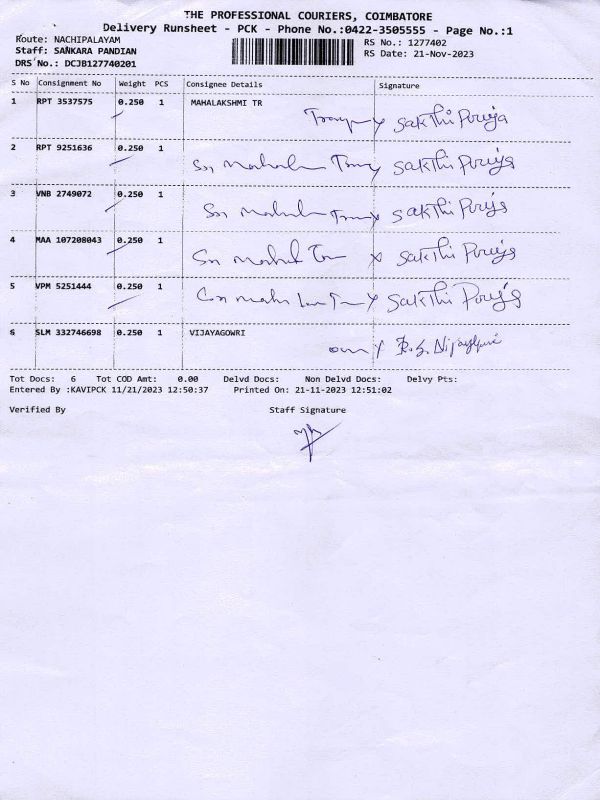 THE PROFESSIONAL COURIERS, COIMBATORE
Delivery Runsheet - PCK - Phone No.:0422-3505555 - Page No.:1
Route: NACHIPALAYAM
RS No.: 1277402
Staff: SANKARA PANDIAN
RS Date: 21-Nov-2023
DRS No.: DCJB127740201
S No Consignment No Weight PCS Consignee Details Signature
1 RPT 3537575 0.250 1 MAHALAKSHMI TR
Sakthi Poriya
2 RPT 9251636 0.250 1
Sakthi Poriya
3 VNB 2749072 0.250 1
Sakthi Poriya
4 MAA 107208043 0.250 1
Sakthi Poriya
5 VPM 5251444 0.250 1
Sakthi Poriya
6 SLM 332746698 0.250 1 VIJAYAGOWRI
Tot Docs: 6 Tot COD Amt: 0.00 Delvd Docs: Non Delvd Docs: Delvy Pts:
Entered By :KAVIPCK 11/21/2023 12:50:37 Printed On: 21-11-2023 12:51:02
Verified By Staff Signature